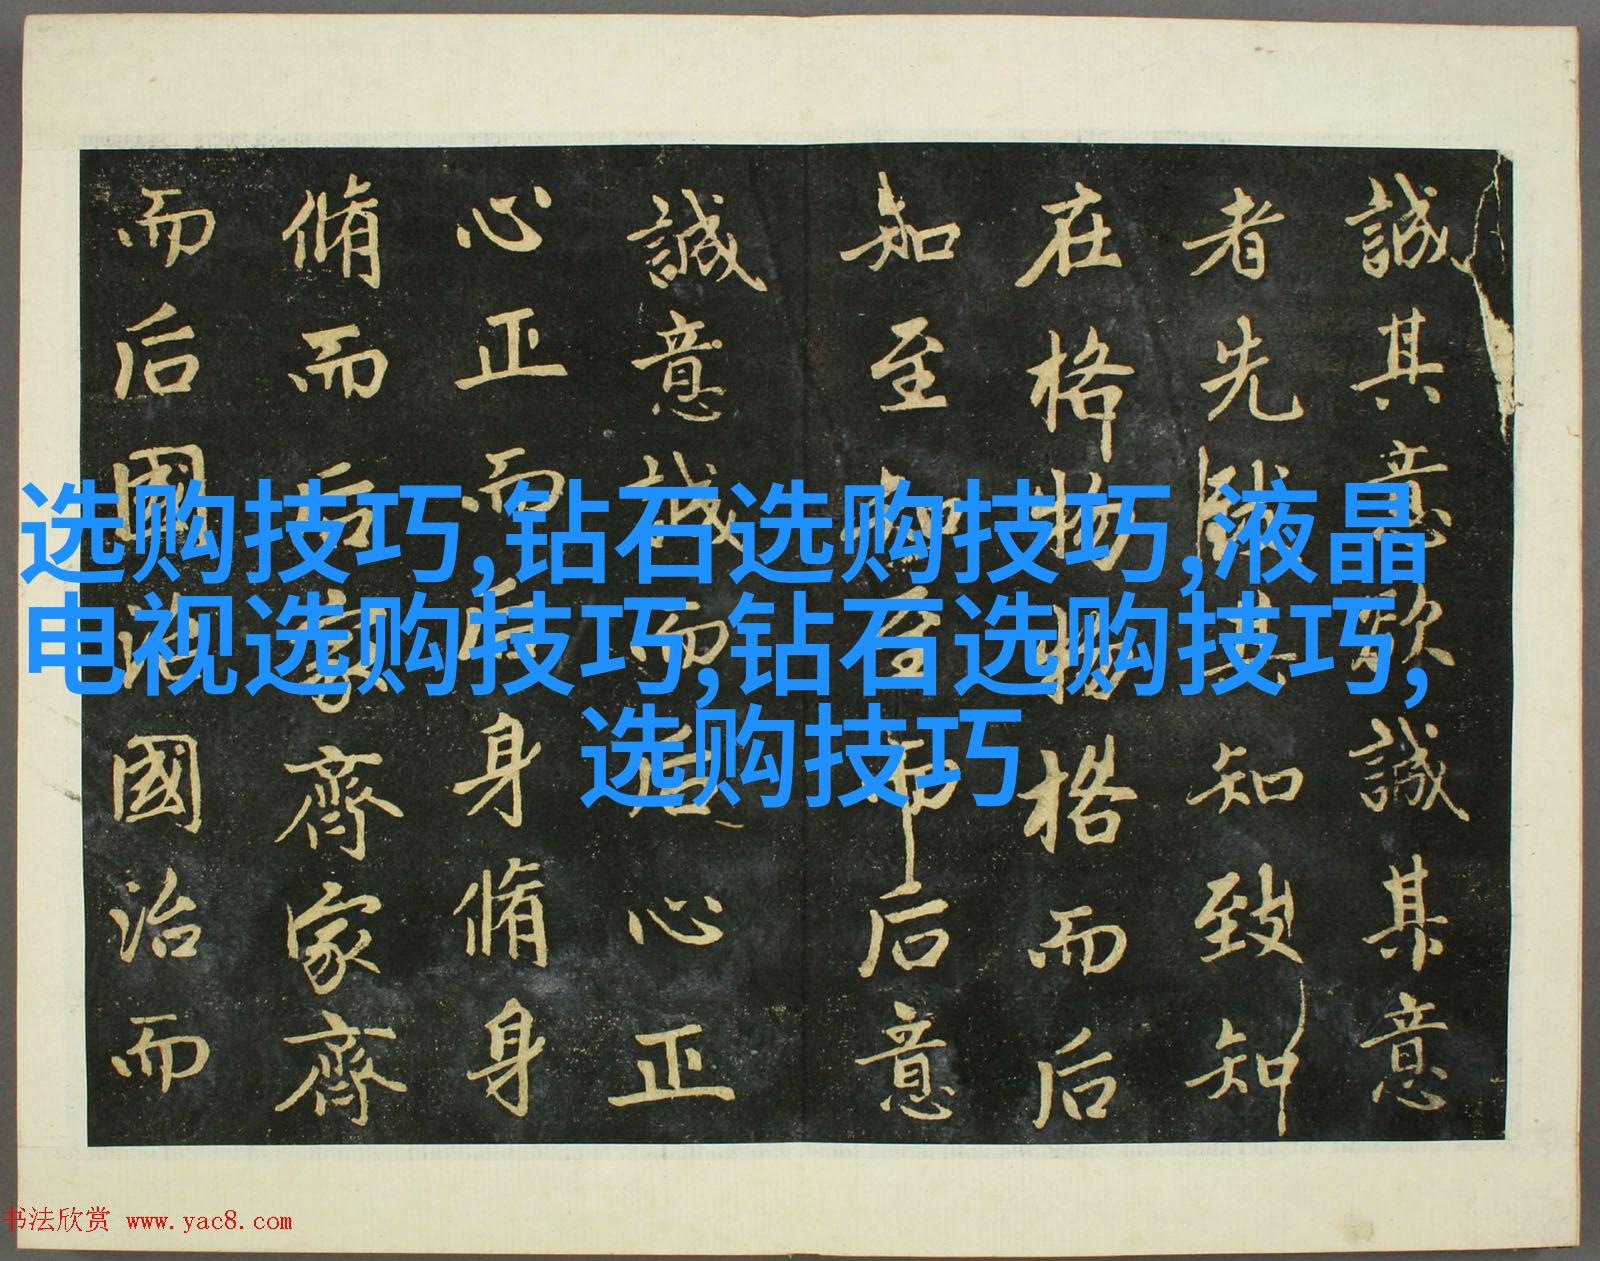 誠其意欲誠其意
者先致其知致知
在格物物格而后
知至知至而后意
誠意誠而后心正
心正而后身脩身
脩而后家齊家齊
而后國治國治而
选购技巧,钻石选购技巧,液晶
电视选购技巧,钻石选购技巧,
选购技巧
书法欣赏 www.yac8.com